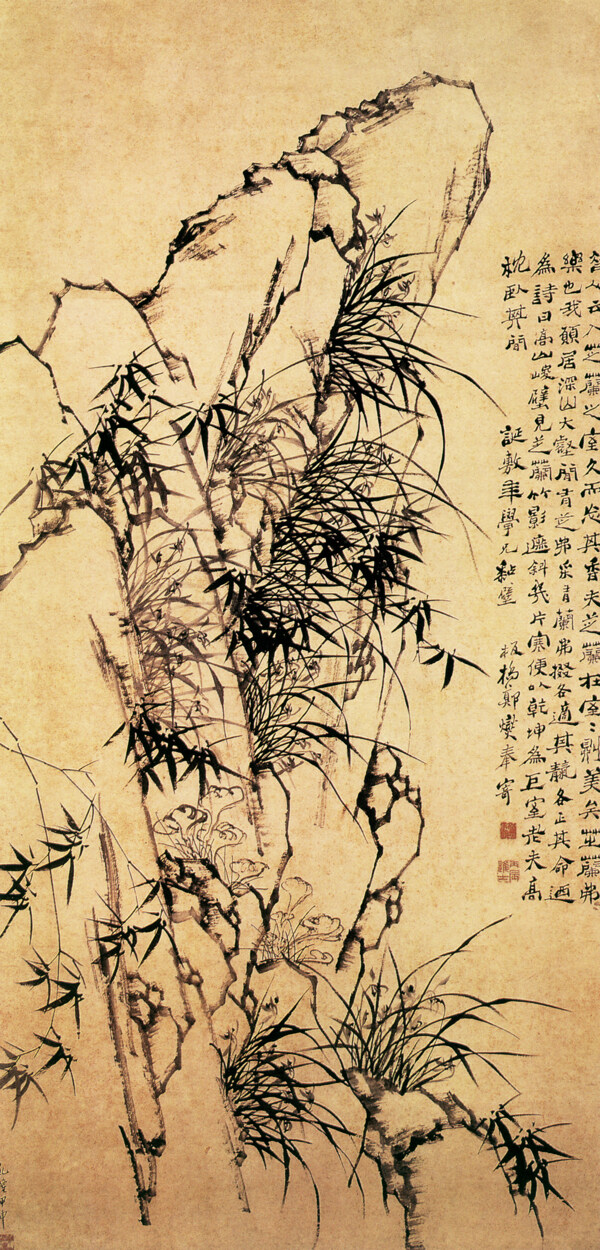 昔人云入芝蘭之室久而忘其香夫芝蘭在室〻則美矣芝蘭弗
樂也我願居深山大壑間有芝弗采有蘭弗掇各適其 各正其命迺
為詩曰高山峻壁見芝蘭竹影遮斜幾片寒便以乾坤為巨室老夫高
枕卧其間 誕敷年學兄黏壁 板橋鄭燮奉寄